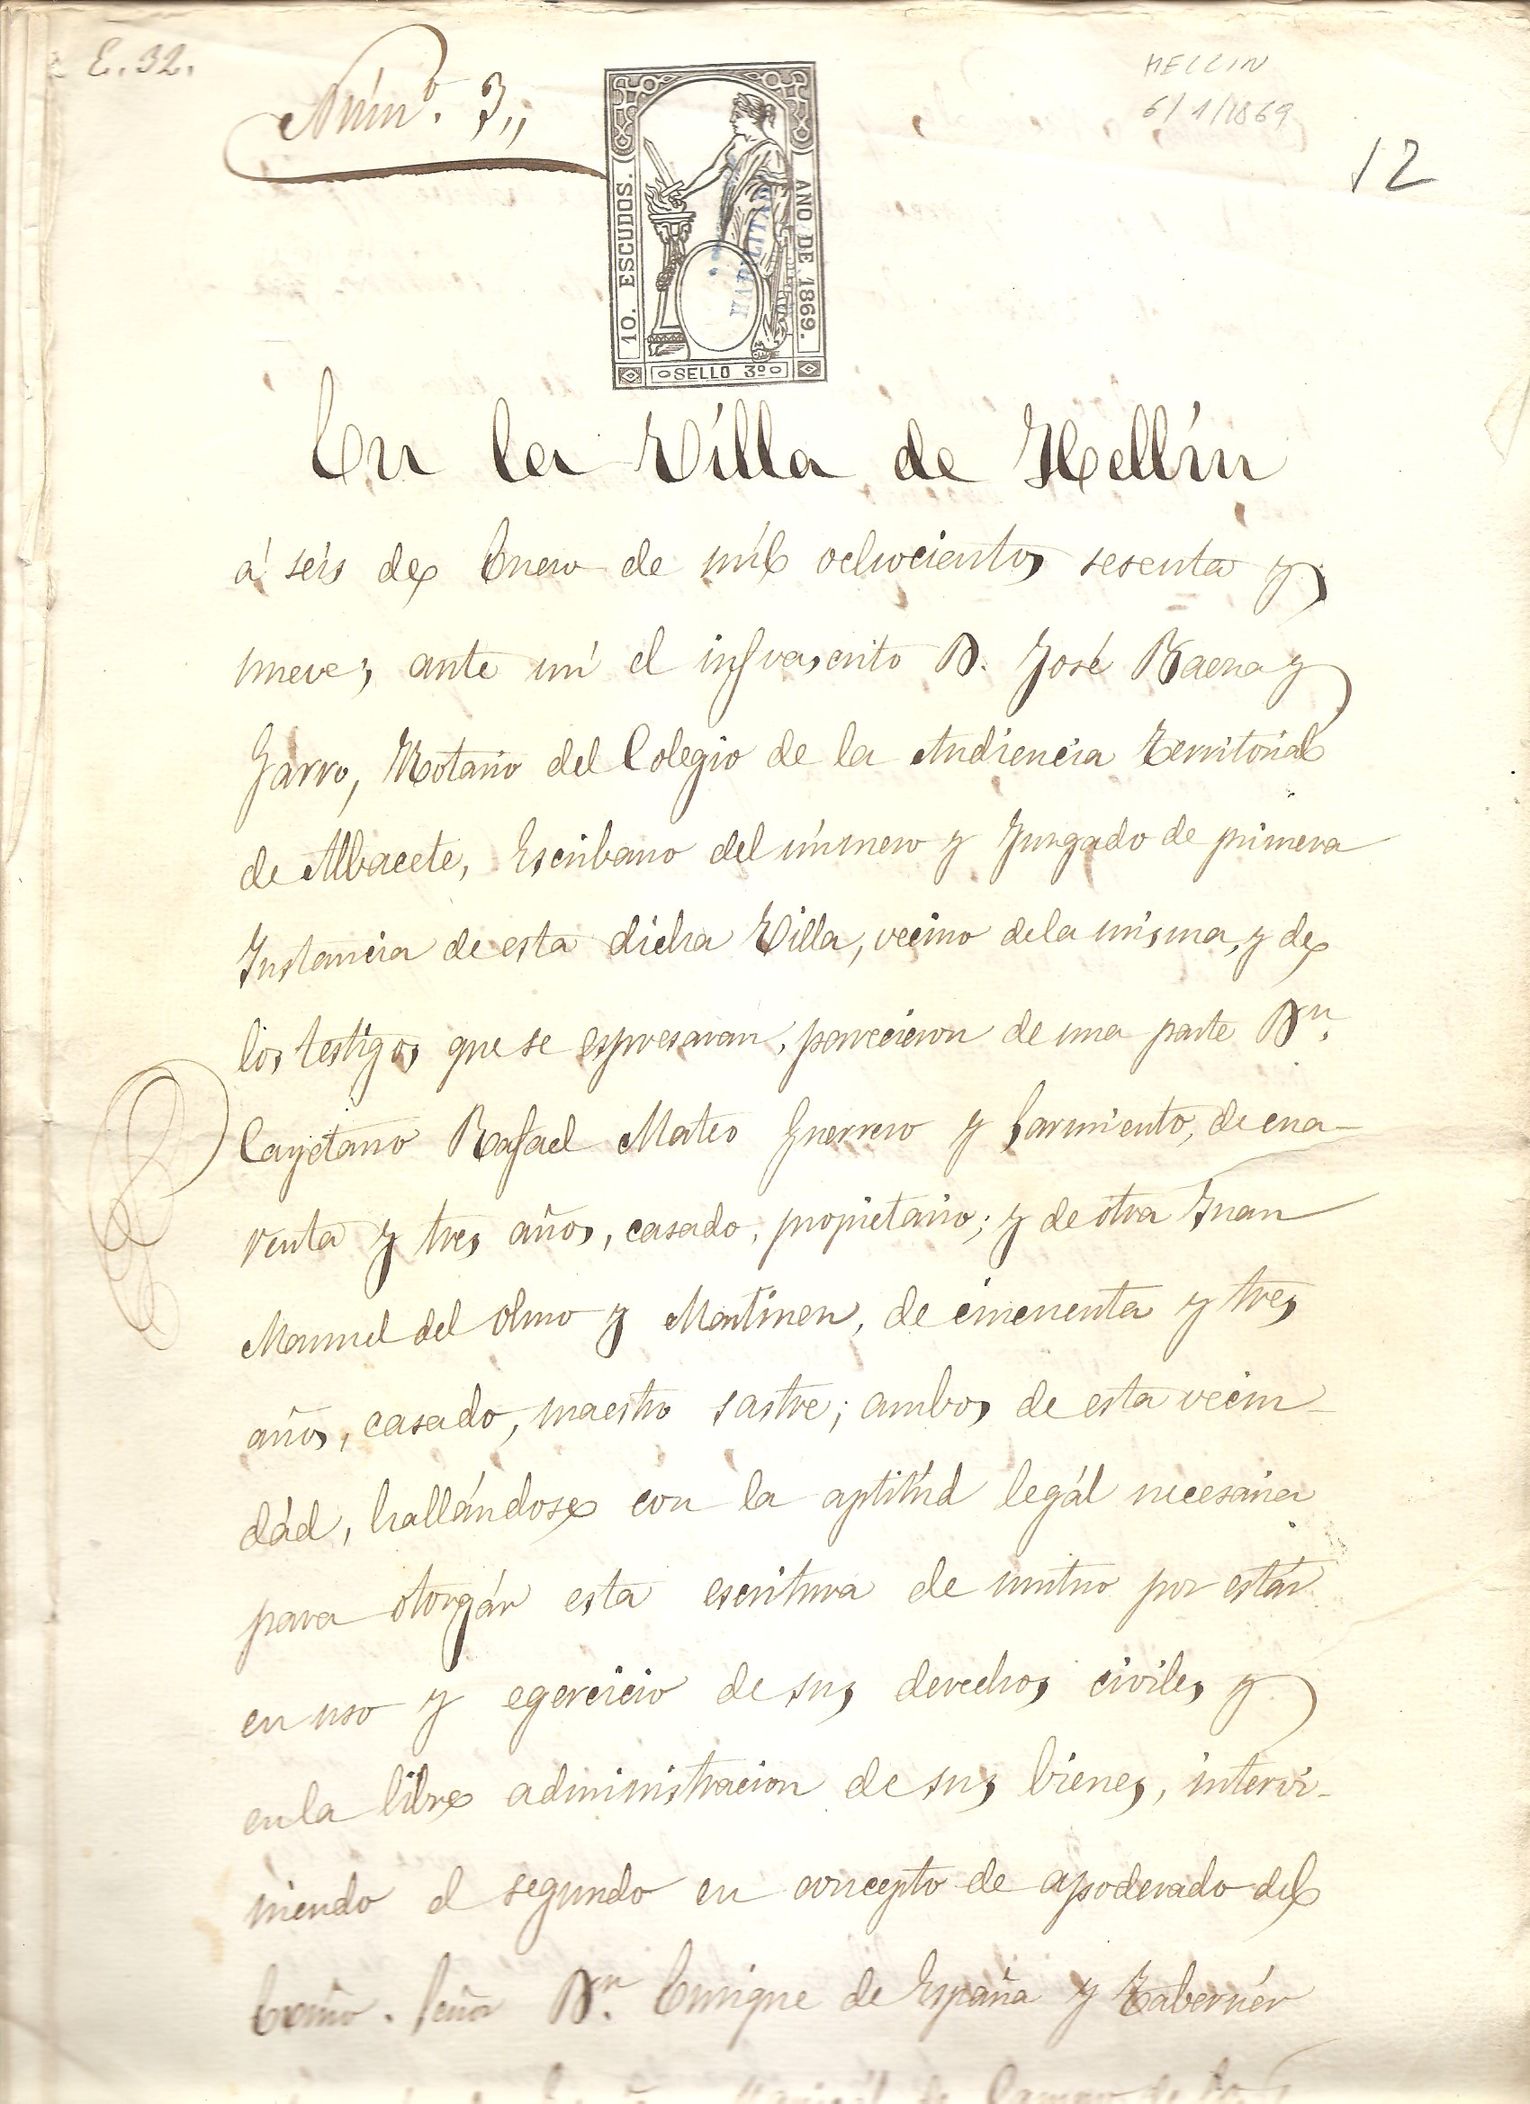 E. 32.
Núm.º 3,,
HELLIN
6/1/1869
12
10. ESCUDOS.
AÑO DE 1869.
HABILITADO
SELLO 3º
En la Villa de Hellín
á seis de Enero de mil ochocientos sesenta y
nueve; ante mí el infrascrito D. José Baena y
Garro, Notario del Colegio de la Audiencia Territorial
de Albacete, Escribano del número y Juzgado de primera
Instancia de esta dicha Villa, vecino de la misma, y de
los testigos que se espresaran, parecieron de una parte Dn.
Cayetano Rafael Mateo Guerrero y Sarmiento, de cua-
renta y tres años, casado, propietario; y de otra Juan
Manuel del Olmo y Martinez, de cincuenta y tres
años, casado, maestro sastre; ambos de esta vecin-
dád, hallándose con la aptitúd legál necesaria
para otorgár esta escritura de mutuo por estár
en uso y egercicio de sus derechos civiles y
en la libre administracion de sus bienes, intervi-
niendo el segundo en concepto de apoderado del
Excmo. Señor Dn. Enrique de España y Tabernér